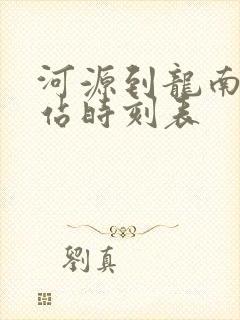 河源到龍南
佔時刻表
劉真